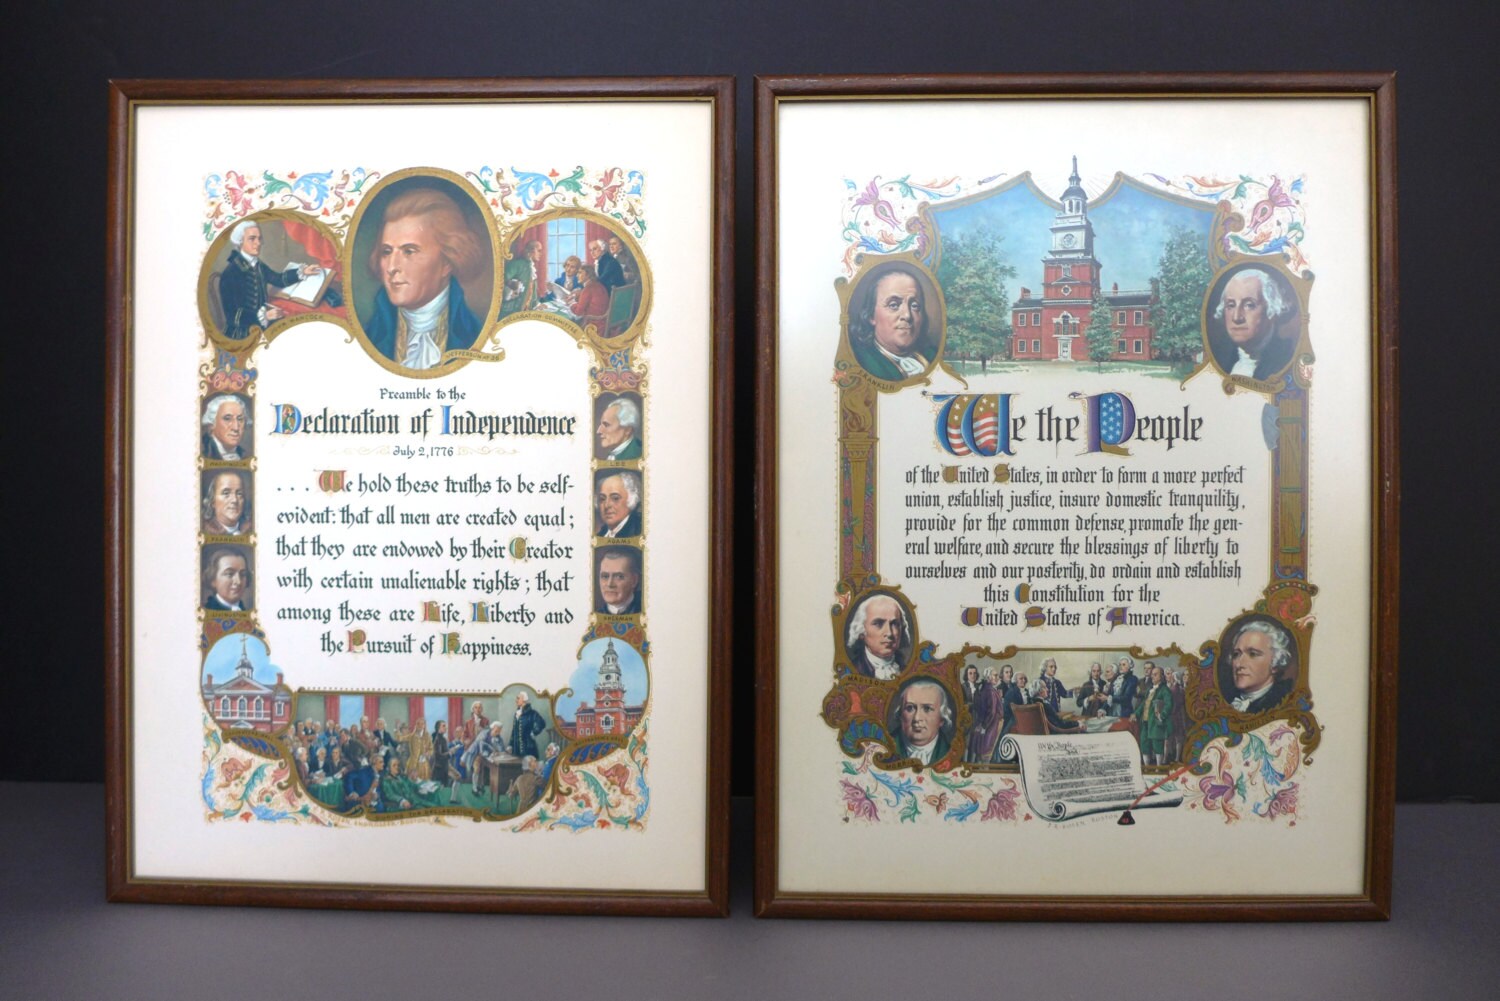 JOHN HANCOCK
JEFFERSON AT 33
DECLARATION COMMITTEE
Preamble to the
Declaration of Independence
July 2, 1776
. . . We hold these truths to be self-
evident: that all men are created equal;
that they are endowed by their Creator
with certain unalienable rights; that
among these are Life, Liberty and
the Pursuit of Happiness.
WASHINGTON
FRANKLIN
LEE
ADAMS
SHERMAN
FRANKLIN
WASHINGTON
We the People
of the United States, in order to form a more perfect
union, establish justice, insure domestic tranquility,
provide for the common defense, promote the gen-
eral welfare, and secure the blessings of liberty to
ourselves and our posterity, do ordain and establish
this Constitution for the
United States of America.
MADISON
We the People